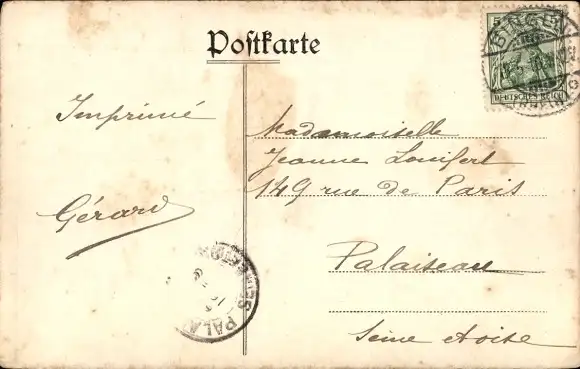 Postkarte
Imprimé
Gérard
Mademoiselle
Jeanne Louifert
149 rue de Paris
Palaiseau
Seine et oise
5
DEUTSCHES REICH
PALA